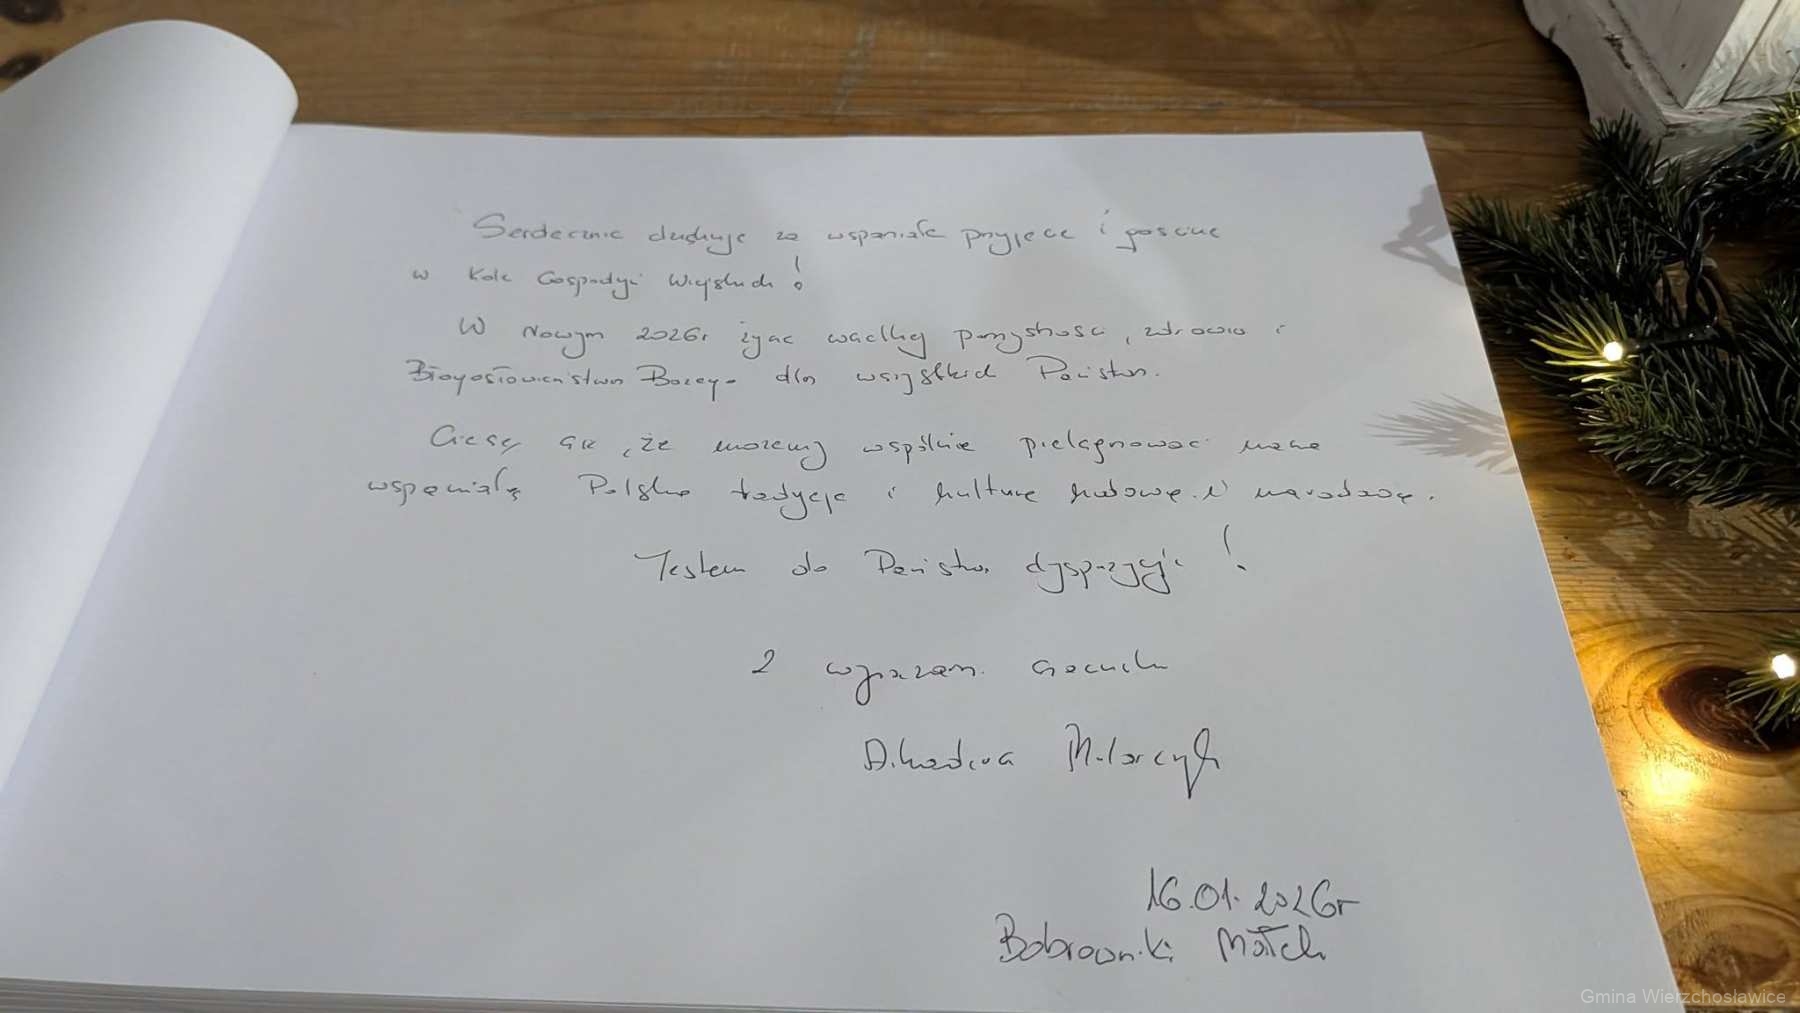 Serdecznie dziękuję za wspaniałe przyjęcie i gościnę
w Kole Gospodyń Wiejskich!
W Nowym 2026r życzę wielkiej pomyślności, zdrowia i
Błogosławieństwa Bożego dla wszystkich Państwa.
Cieszę się, że możemy wspólnie pielęgnować naszą
wspaniałą Polską tradycję i kulturę ludową i narodową.
Jestem do Państwa dyspozycji!
Z wyrazami szacunku
16.01.2026r
Bobrowniki Małe
Gmina Wierzchosławice